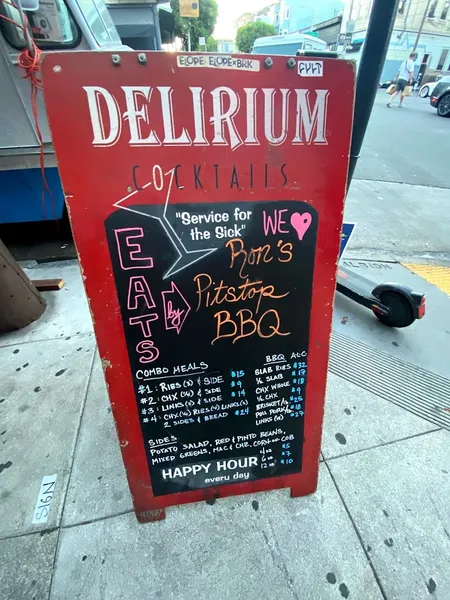 ELOPE ELOPE×BRK
CVLT
DELIRIUM
COCKTAILS
"Service for
the Sick"
WE
EATS
by
Ron's
Pitstop
BBQ
COMBO MEALS
#1: RIBS(3) & SIDE $15
#2: CHX(1/4) & SIDE $9
#3: LINKS(2) & SIDE $14
#4: CHX(1/4) RIBS(4) LINKS(2)
2 SIDES & BREAD $24
BBQ A+C
SLAB RIBS $32
1/2 SLAB $17
CHX WHOLE $18
1/2 CHX $9
BRISKET/lb $25
LINKS $27
SIDES
POTATO SALAD, RED & PINTO BEANS,
MIXED GREENS, MAC & CHZ, CORN on COB
4oz $5
8oz $7
12oz $10
HAPPY HOUR
every day
SIGN